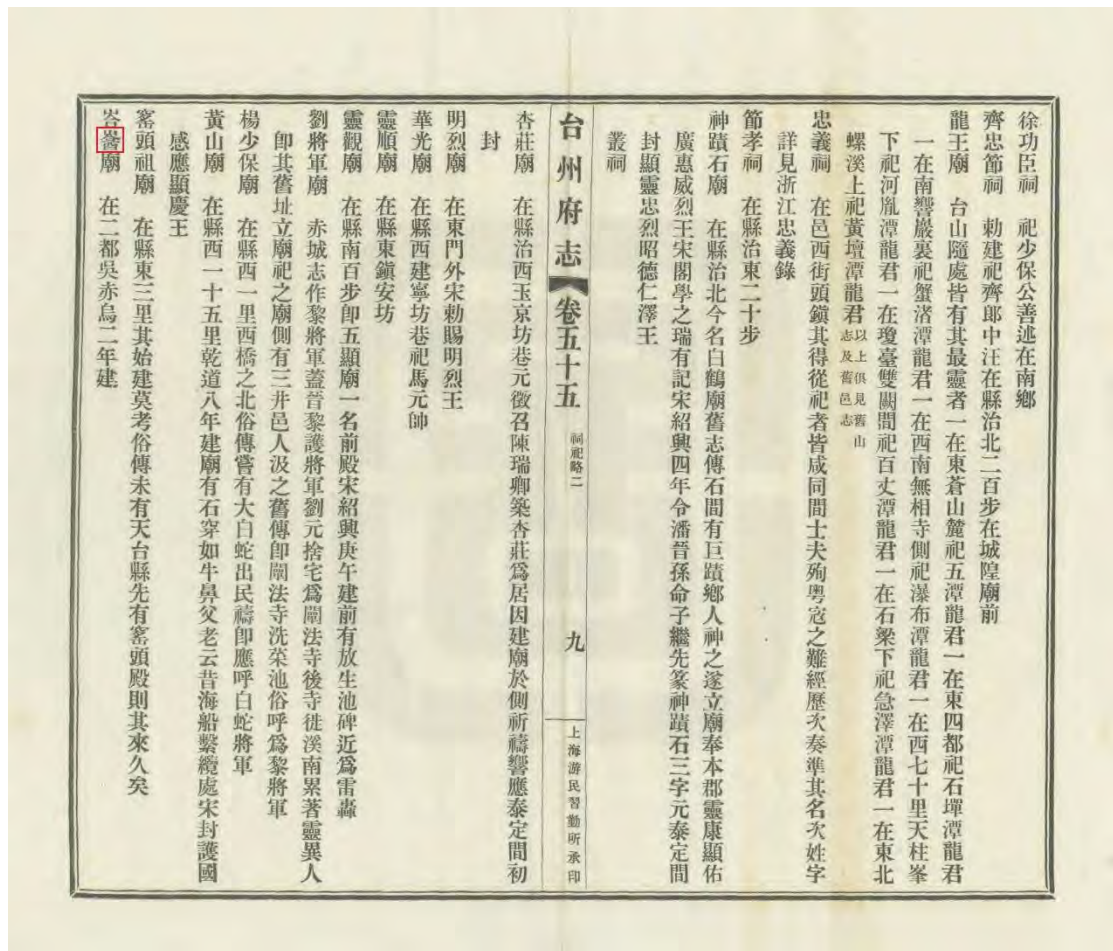 徐功臣祠　祀少保公善述在南鄉
齊忠節祠　勅建祀齊郎中汪在縣治北二百步在城隍廟前
龍王廟　台山隨處皆有其最靈者一在東蒼山麓祀五潭龍君一在東四都祀石墠潭龍君
一在南響巖裏祀蟹渚潭龍君一在西南無相寺側祀瀑布潭龍君一在西七十里天柱峯
下祀河胤潭龍君一在瓊臺雙闕間祀百丈潭龍君一在石梁下祀急澤潭龍君一在東北
螺溪上祀黃壇潭龍君以上俱見舊山志及舊邑志
忠義祠　在邑西街頭鎮其得從祀者皆咸同間士夫殉粤寇之難經歷次奏準其名次姓字
詳見浙江忠義錄
節孝祠　在縣治東二十步
神蹟石廟　在縣治北今名白鶴廟舊志傳石間有巨蹟鄉人神之遂立廟奉本郡靈康顯佑
廣惠威烈王宋閣學之瑞有記宋紹興四年令潘晉孫命子繼先篆神蹟石三字元泰定間
封顯靈忠烈昭德仁澤王
叢祠
台州府志　卷五十五　祠祀略二　九　上海游民習勤所承印
杏莊廟　在縣治西玉京坊巷元徵召陳瑞卿築杏莊爲居因建廟於側祈禱響應泰定間初
封
明烈廟　在東門外宋勅賜明烈王
華光廟　在縣西建寧坊巷祀馬元帥
靈順廟　在縣東鎮安坊
靈觀廟　在縣南百步卽五顯廟一名前殿宋紹興庚午建前有放生池碑近爲雷轟
劉將軍廟　赤城志作黎將軍蓋晉黎護將軍劉元捨宅爲闡法寺後寺徙溪南累著靈異人
卽其舊址立廟祀之廟側有三井邑人汲之舊傳卽闡法寺洗菜池俗呼爲黎將軍
楊少保廟　在縣西一里西橋之北俗傳嘗有大白蛇出民禱卽應呼白蛇將軍
黃山廟　在縣西一十五里乾道八年建廟有石穿如牛鼻父老云昔海船繫纜處宋封護國
感應顯慶王
窰頭祖廟　在縣東三里其始建莫考俗傳未有天台縣先有窰頭殿則其來久矣
岺廟　在二都吳赤烏二年建